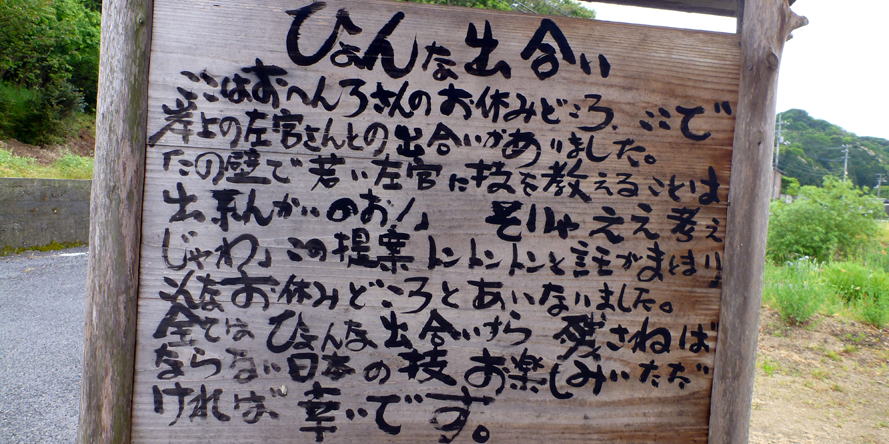 ひょんな出合い
ここはおへんろさんのお休みどころ、ここで
岸上の左官さんとの出合いがありました。
たの壁で若い左官に技を教えることは
出来んかいのお!」 そりゃええ考え
じゃわ」この提案トントントンと話がまとまり
こんなお休みどころとあいなりました。
全てはひょんな出合いから 残さねば
ならない日本の技 お楽しみいただ
ければ、幸いです。